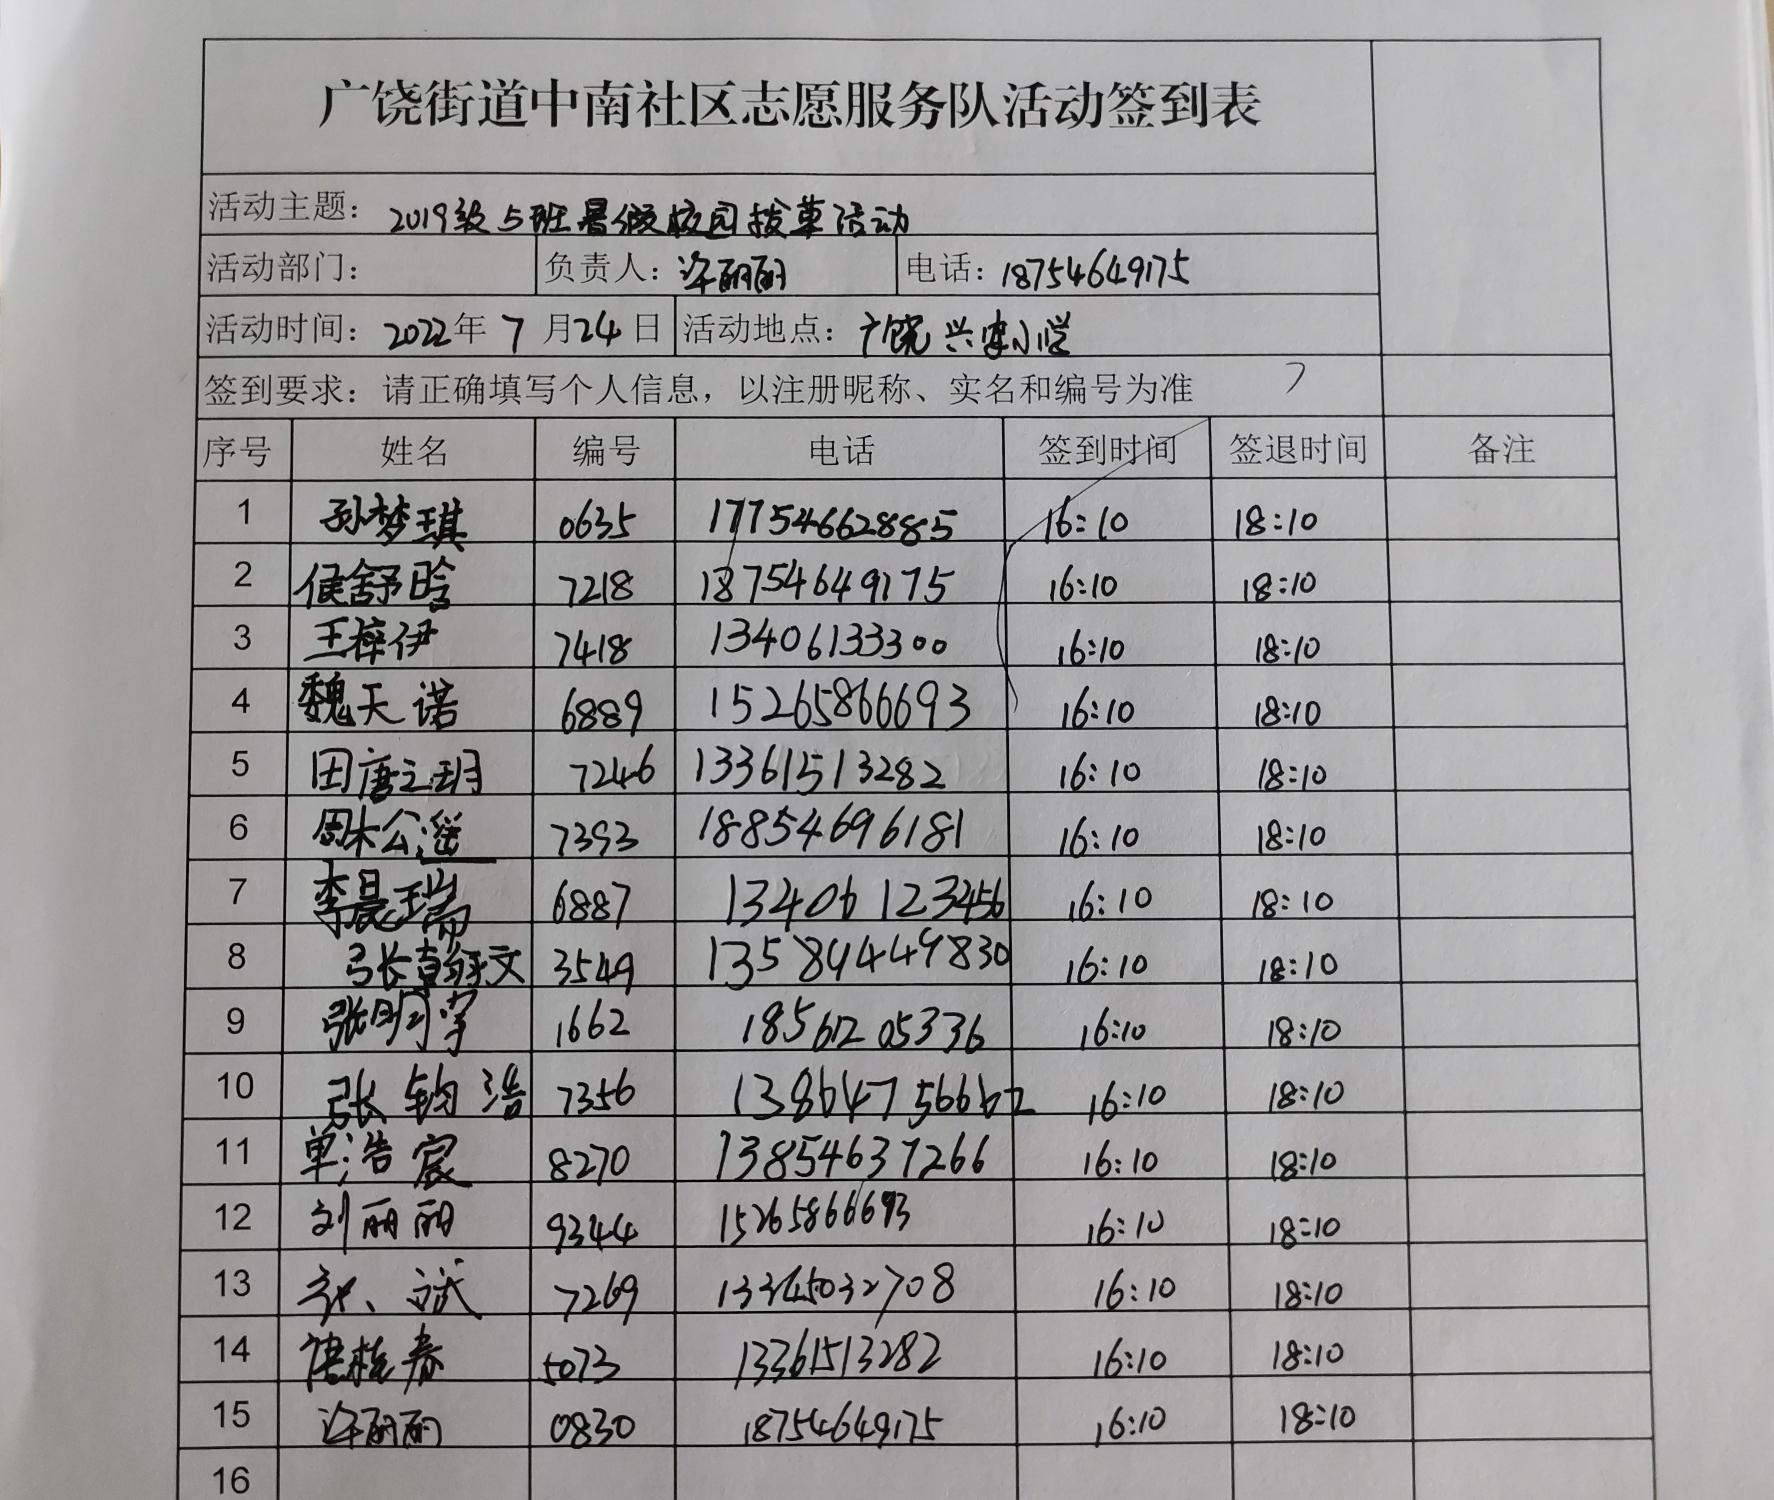 广饶街道中南社区志愿服务队活动签到表
活动主题：2019级5班暑假校园拔草活动
活动部门： 负责人：许丽丽 电话：18754649175
活动时间：2022年7月24日 活动地点：广饶兴安小学
签到要求：请正确填写个人信息，以注册昵称、实名和编号为准
序号 姓名 编号 电话 签到时间 签退时间 备注
1 孙梦琪 0635 17754662885 16:10 18:10
2 侯舒晗 7218 18754649175 16:10 18:10
3 王梓伊 7418 13406133300 16:10 18:10
4 魏天诺 6889 15265866693 16:10 18:10
5 田唐之玥 7246 13361513282 16:10 18:10
6 周木公遥 7393 18854696181 16:10 18:10
7 李晨瑞 6887 13406123456 16:10 18:10
8 张翰文 3549 135 16:10 18:10
9 张明宇 1662 18561205336 16:10 18:10
10 张钧浩 7356 13864756662 16:10 18:10
11 单浩宸 8270 13854637266 16:10 18:10
12 刘丽丽 9344 15265866693 16:10 18:10
13 7269 13345032708 16:10 18:10
14 唐桂春 5073 13361513282 16:10 18:10
15 许丽丽 0830 18754649175 16:10 18:10
16